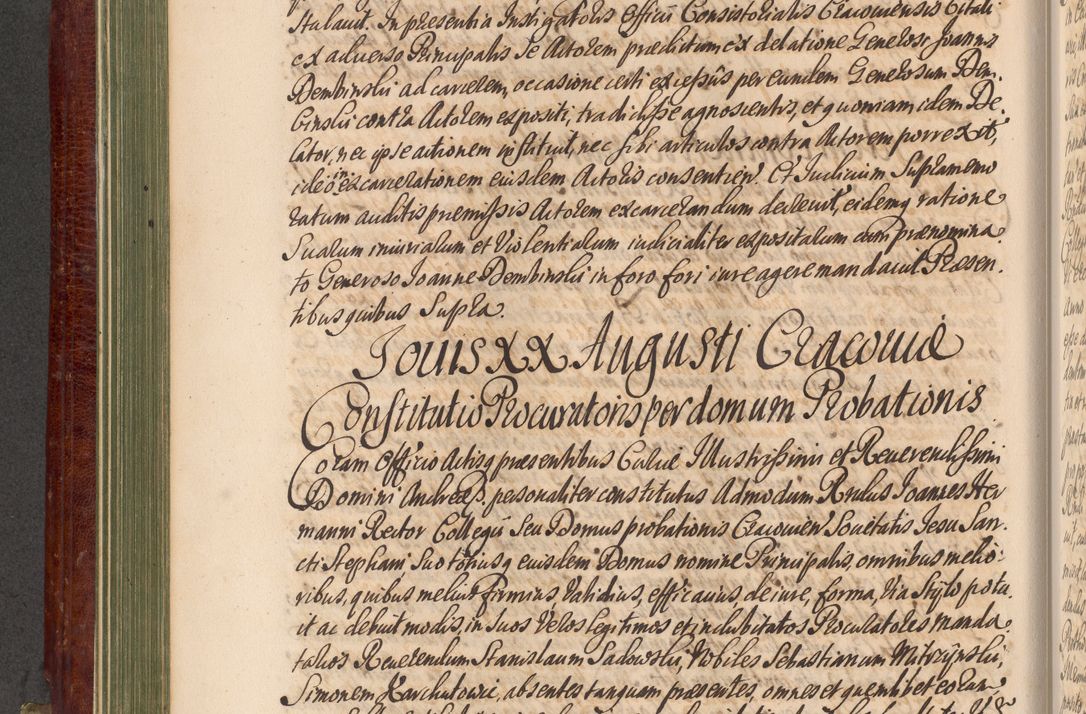 Stulauit. In presentia Instigatoris Officii Consistorialis Cracouiensis Citati
ex aduerso Principalis se Actorem præditum ex delatione Generosi Joannis
Dembinskii ad carcerem, occasione certi excessûs per eundem Generosum Dem.
binskii contra Actorem expositi, tradidisse agnoscentis, et quoniam idem De.
lator, nec ipse actionem instituit, nec sibi articulos contra Actorem porrexit,
ideo in excarcerationem eiusdem Actoris consentien. Et Iudicium Supramemo
ratum auditis premissis Actorem excarcerandum decreuit, eidemq ratione
Suarum iniuriarum et Violentiarum iudicialiter expositarum cum prænomina.
to Generoso Joanne Dembinskii in foro fori iure agere mandauit. Præsen.
tibus quibus Supra.
Jouis XX Augusti Cracouiæ
Constitutio Procuratoris per domum Probationis
Coram Officio Actisq præsentibus Curiæ Illustrissimi et Reuerendissimi
Domini Andreæ personaliter constitutus Admodum Rndus Joannes Her
manni Rector Collegii Seu Domus probationis Cracouien Societatis Jesu San.
cti Stephani Suo totiusq eiusdem Domus nomine Principalis, omnibus melio.
ribus, quibus melius Firmius, Validius, efficacius de iure, forma, Via Stylo potu
it ac debuit modis, in Suos Veros legitimos et indubitatos Procuratores manda.
tarios Reuerendum Stanislaum Sadowski, Nobiles Sebastianum Mitrzynski,
Simonem Karchutowic, absentes tanquam præsentes, omnes et quemlibet eorum